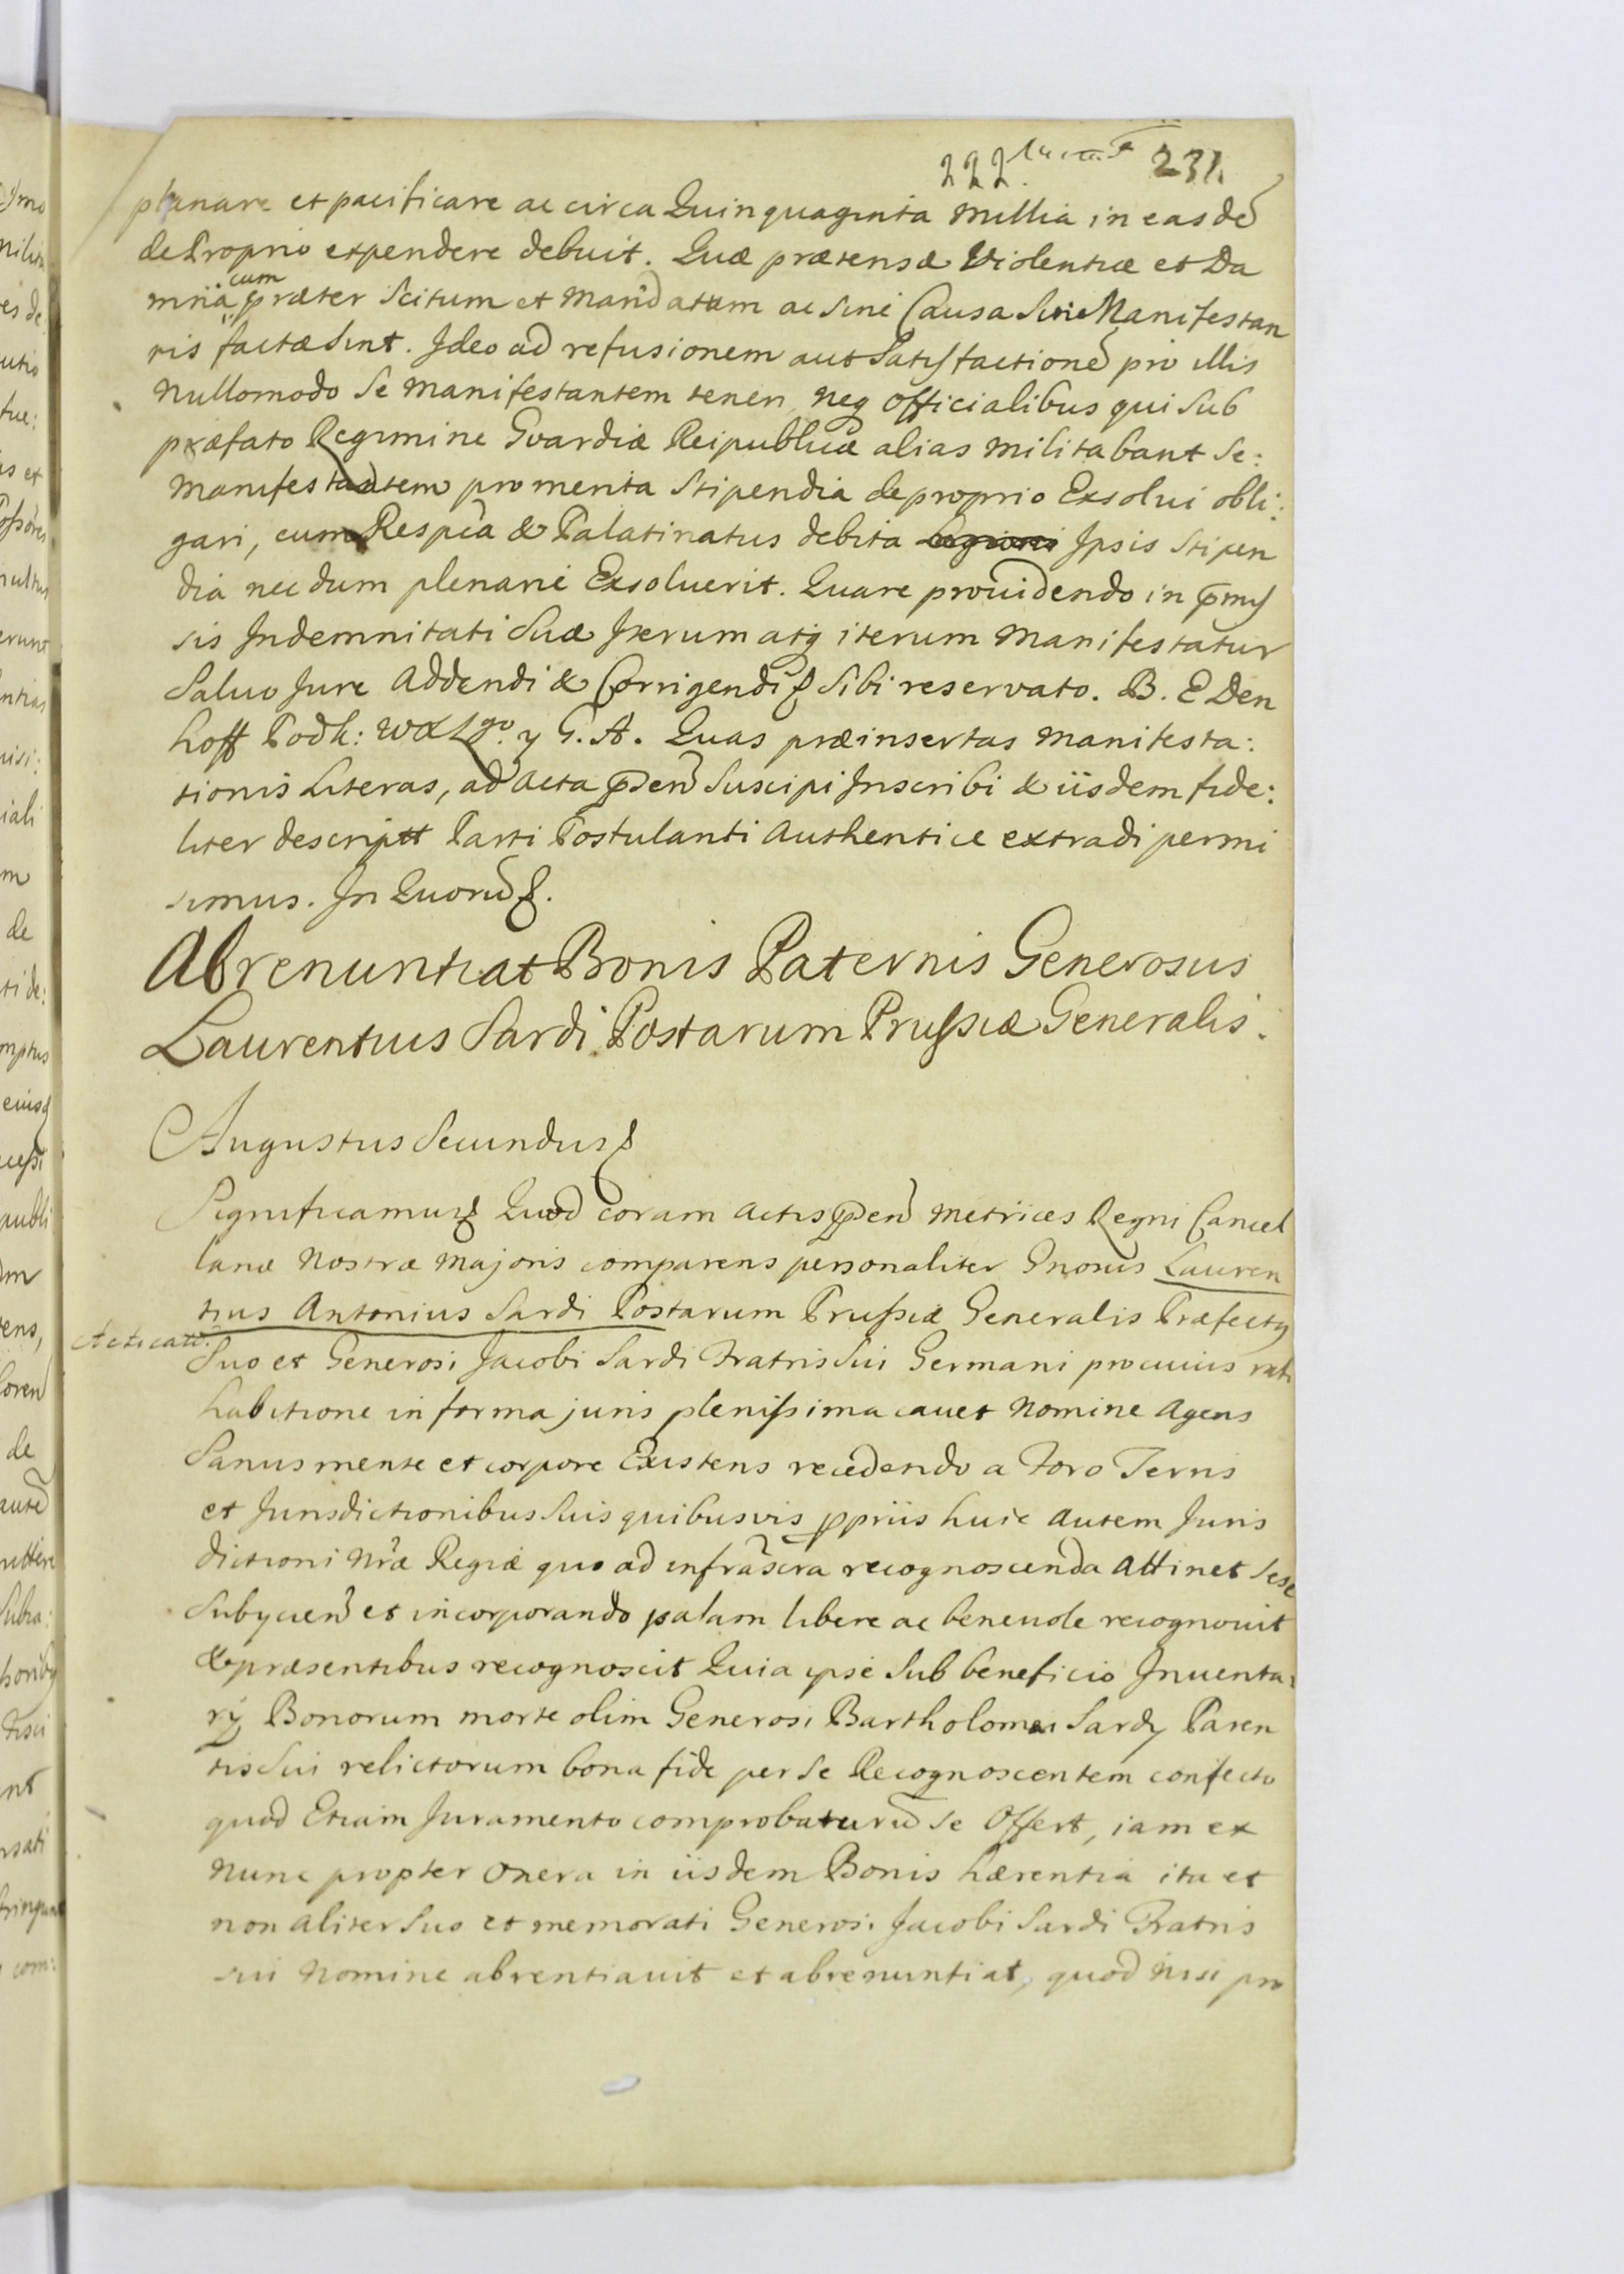 222. 231.
planare et pacificare ac circa Quinquaginta Millia in easdẽ
de Proprio expendere debuit. Quæ prætensæ Violentiæ et Da
mna cum præter Scitum et Mandatum ac sine Causa Sui Manifestan
tis factæ sint. Ideo ad refusionem aut Satisfactionẽ pro illis
Nullomodo Se Manifestantem teneri, Neq Officialibus qui Sub
præfato Regimine Gvardiæ Reipublicæ alias Militabant Se:
Manifestantem pro merita Stipendia de proprio Exsolui obli:
gari, cum Respca & Palatinatus debita Ipsis Stipen
dia nec dum plenarie Exsoluerit. Quare prouidendo in p̃mis
sis Indemnitati Suæ Iterum atq iterum Manifestatur
Saluo Jure Addendi & Corrigendi Sibi reservato. B. E Den
hoff Podk: WXLgo. y G. A. Quas præinsertas Manifesta:
tionis Literas, ad Acta p̃sen Suscipi Inscribi & iisdem fide:
liter descriptt Parti Postulanti Authentice extradi permi
simus. In Quorũ
Abrenuntiat Bonis Paternis Generosus
Laurentius Sardi Postarum Prussiæ Generalis.
Augustus Secundus
Significamus Quod coram Actis p̃sen Metrices Regni Cancel
lariæ Nostræ Majoris comparens personaliter Gnosus Lauren
tius Antonius Sardi Postarum Prussiæ Generalis Præfectq
Acticatio.
Suo et Generosi Jacobi Sardi Fratris Sui Germani pro cuius rati
habitione in forma juris plenissima cauet Nomine Agens
Sanus mente et corpore Existens recedendo a Foro Terris
et Jurisdictionibus Suis quibusvis ppriis huic Autem Juris
dictioni Nræ Regiæ quo ad infrascra recognoscenda Attinet Sese
Subycien et incorporando palam libere ac beneuole recognouit
& præsentibus recognoscit Quia ipse Sub beneficio Inuenta:
rÿ Bonorum morte olim Generosi Bartholomæi Sardy Paren
tis Sui relictorum bona fide per Se Recognoscentem confecto
quod Etiam Juramento comprobaturũ Se Offert, iam ex
Nunc propter Onera in iisdem Bonis hærentia ita et
non Aliter Suo et memorati Generosi Jacobi Sardi Fratris
sui Nomine abrentiauit et abrenuntiat, quod Nisi pro